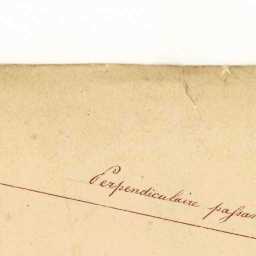 Perpendiculaire passan